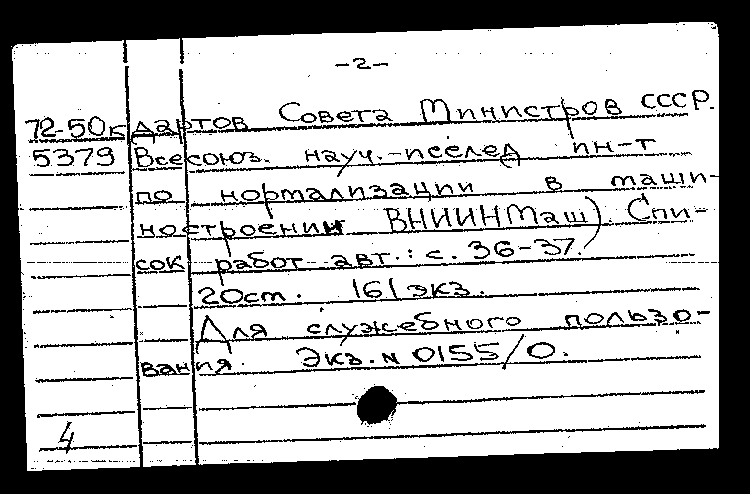 -2-
72-50к дартов Совета Министров СССР.
5379 Всесоюз. науч.-исслед. ин-т
по нормализации в маши-
ностроении ВНИИНМаш). Спи-
сок работ авт.: с. 36-37.
20см. 161 экз.
Для служебного пользо-
вания. Экз. № 0155/О.
4